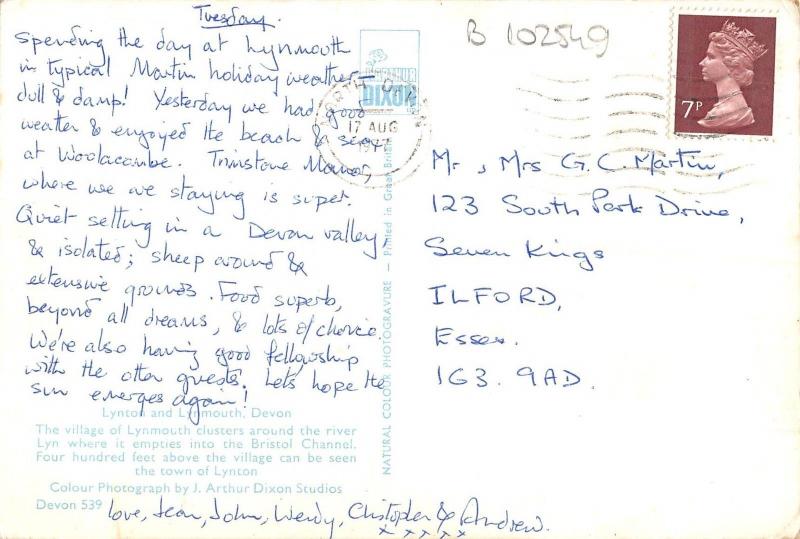 Tuesday.
Spending the day at Lynmouth
in typical Martin holiday weather -
dull & damp! Yesterday we had good
weather & enjoyed the beach & sea
at Woolacombe. Trimstone Manor,
where we are staying is super.
Quiet setting in a Devon valley,
& isolated; sheep around &
extensive grounds. Food superb,
beyond all dreams, & lots of choice.
We're also having good fellowship
with the other guests. Let's hope the
sun emerges again!
Lynton and Lynmouth, Devon
The village of Lynmouth clusters around the river
Lyn where it empties into the Bristol Channel.
Four hundred feet above the village can be seen
the town of Lynton
Colour Photograph by J. Arthur Dixon Studios
Devon 539
love, Jean, John, Wendy, Chistopher & Andrew.
x x x x x
DIXON
NATURAL COLOUR PHOTOGRAVURE — Printed in Great Britain
B 102549
17 AUG
7P
Mr, Mrs G. C. Martin,
123 South Park Drive,
Seven Kings
ILFORD,
Essex.
IG3. 9AD.